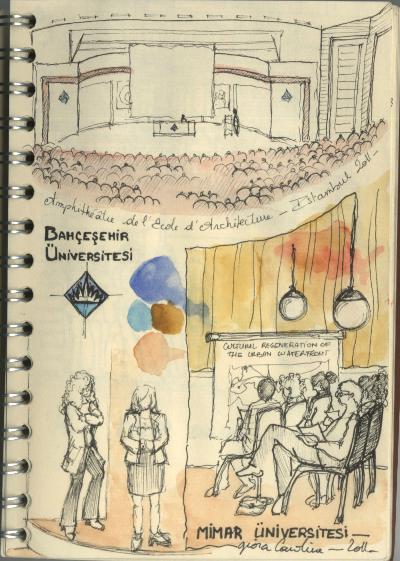 Amphithéâtre de l'Ecole d'Architecture — Istanbul 2011—
BAHÇEŞEHIR
ÜNIVERSITESI
CULTURAL REGENERATION OF
THE URBAN WATERFRONT
MIMAR ÜNIVERSITESI—
2011—